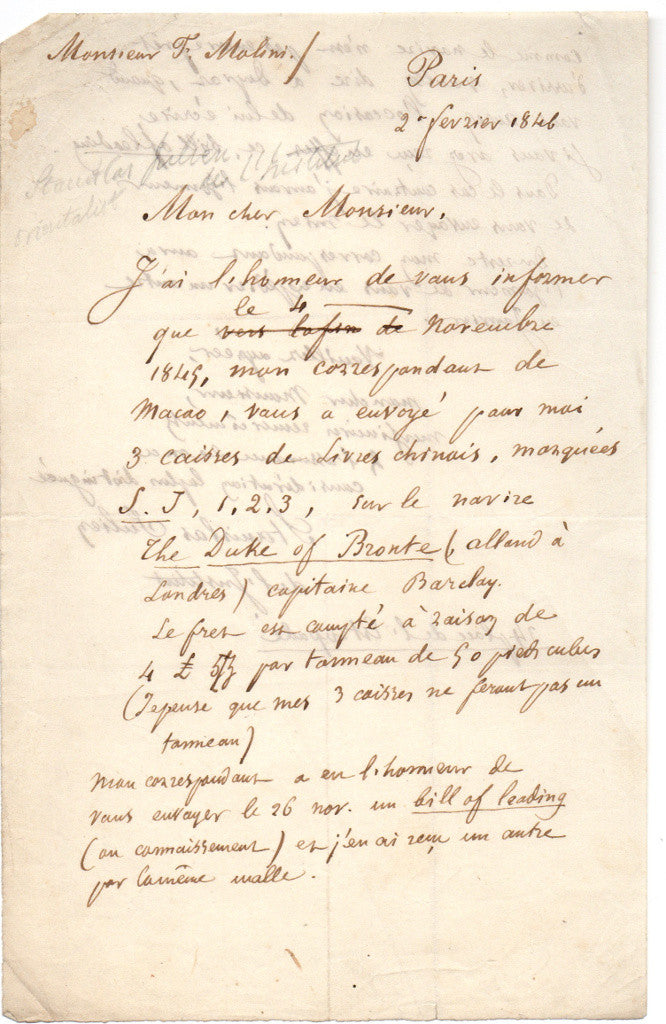 Monsieur F. Molini./
Paris
2 fevrier 1846
Stanislas Julien de l'Institut
orientalist
Mon cher Monsieur,
J'ai l'honneur de vous informer
le 4
que vers lafin de Novembre
1845, mon correspondant de
Macao, vous a envoyé pour moi
3 caisses de Livres chinois, marquées
S. J, 1, 2, 3, sur le navire
The Duke of Bronte (, alland à
Londres) capitaine Barclay.
Le fret est compté à raison de
4 £ par tonneau de 50 pieds cubes
(Je pense que mes 3 caisses ne feront pas un
tonneau)
Mon correspondant a eu l'honneur de
vous envoyer le 26 nov. un bill of leading
(ou connaissement) et j'en ai reçu un autre
par lamême malle.